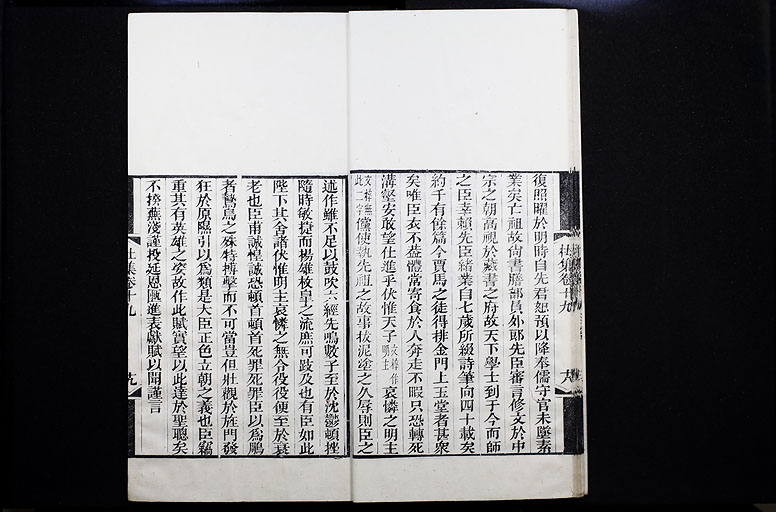 復照曜於明時自先君恕預以降奉儒守官未墜素
業矣亡祖故尙書膳部員外郎先臣審言修文於中
宗之朝高視於藏書之府故天下學士到于今而師
之臣幸賴先臣緒業自七歲所綴詩筆向四十載矣
約千有餘篇今賈馬之徒得排金門上玉堂者甚衆
矣唯臣衣不葢體常寄食於人奔走不暇只恐轉死
溝壑安敢望仕進乎伏惟天子文粹作明主哀憐之明主
文粹無此二字儻使執先祖之故事拔泥塗之久辱則臣之
述作雖不足以鼓吹六經先鳴數子至於沈鬱頓挫
隨時敏捷而揚雄枚皋之流庶可跂及也有臣如此
陛下其舍諸伏惟明主哀憐之無令役役便至於衰
老也臣甫誠惶誠恐頓首頓首死罪死罪臣以爲鵰
者鷙鳥之殊特搏擊而不可當豈但壯觀於旌門發
狂於原隰引以爲類是大臣正色立朝之義也臣竊
重其有英雄之姿故作此賦實望以此達於聖聰矣
不揆蕪淺謹投延恩匭進表獻賦以聞謹言
杜集卷十九